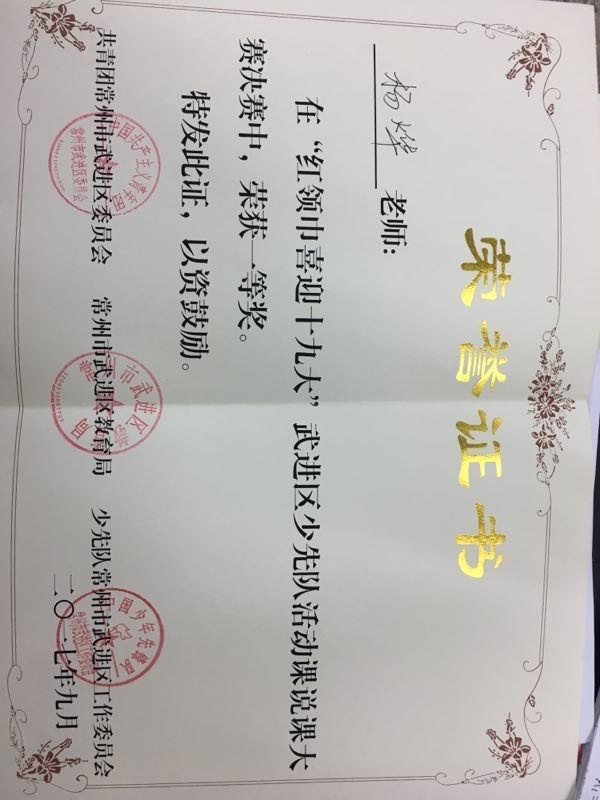 荣誉证书
杨烨 老师：
在“红领巾喜迎十九大”武进区少先队活动课说课大
赛决赛中，荣获一等奖。
特发此证，以资鼓励。
共青团常州市武进区委员会 常州市武进区教育局 少先队常州市武进区工作委员会
二〇一七年九月